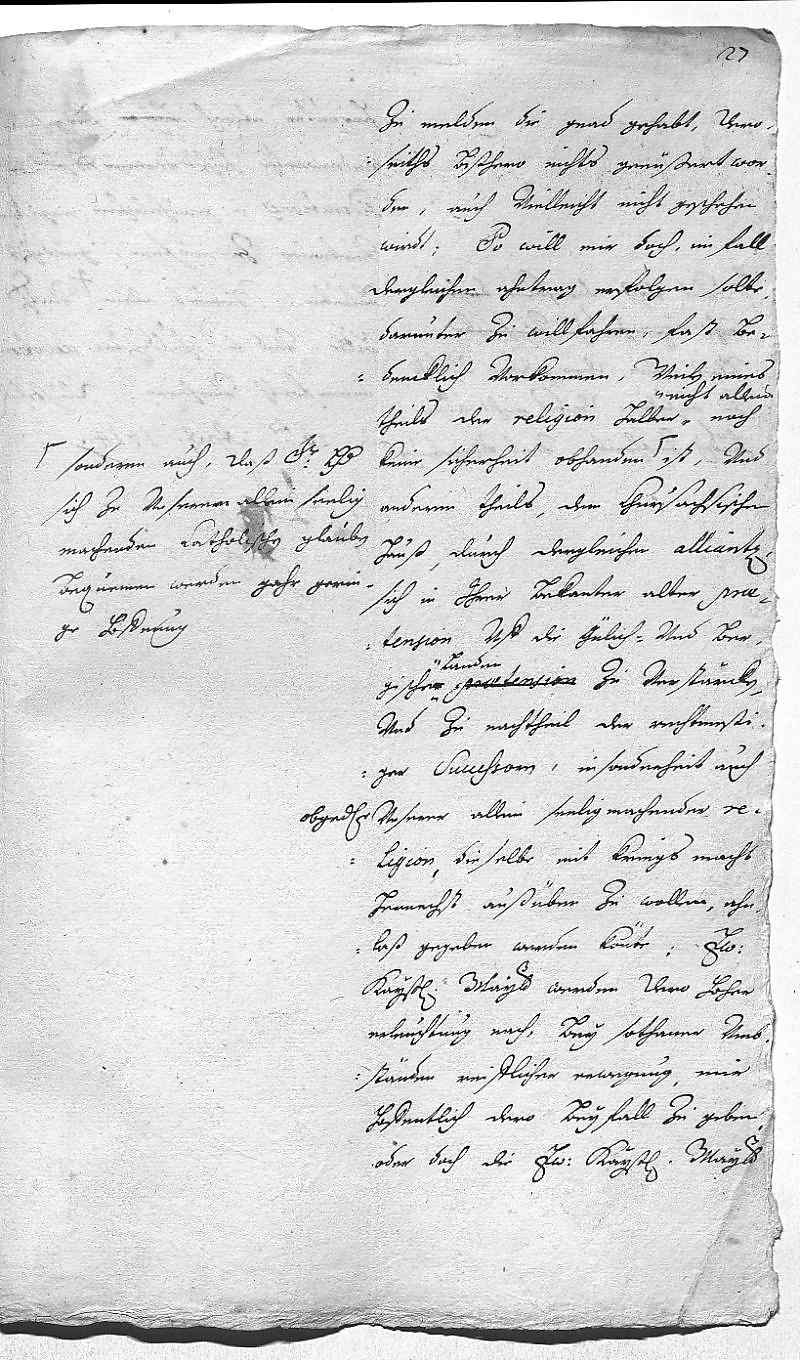 27
Zu melden die gnad gehabt, dero-
seiths bishero nichts geäußert wor-
den, auch Villeicht nicht geschehen
wirdt; So will mir doch, im fall
dergleichen ahntrag erfolgen solte,
darunter zu willfahren, fast be-
dencklich Vorkommen, Weilen eines
theils der religion halber nicht allein noch
keine sicherheit obhanden ⌈ ist, Und
anderen theils, dem Chursächsischen
Hauß, durch dergleichen alliantz,
sich in Ihrer bekanter alter præ-
tension Uff die Gülich- Und Ber-
gische Landen prætension zu Verstärcken,
Und zu nachtheil der rechtmesi-
ger Successoren, insonderheit auch
obged. Unserer allein seeligmachender re-
ligion, dieselbe mit kriegs macht
hernechst ausüben zu wollen, ahn-
laß gegeben werden könte; Ew:
Kayßl: Mayst werden dero hoher
erleuchtung nach, bey sothanen Umb-
ständen reifflicher erwegung, mir
hoffentlich dero beyfall zu geben,
oder doch die Ew: Kayßl. Mayst
⌈ sonderen auch, daß
sich zu Unserem allein seelig
machenden catholischen glauben
bequemen werden gahr gerin-
ge hoffnung